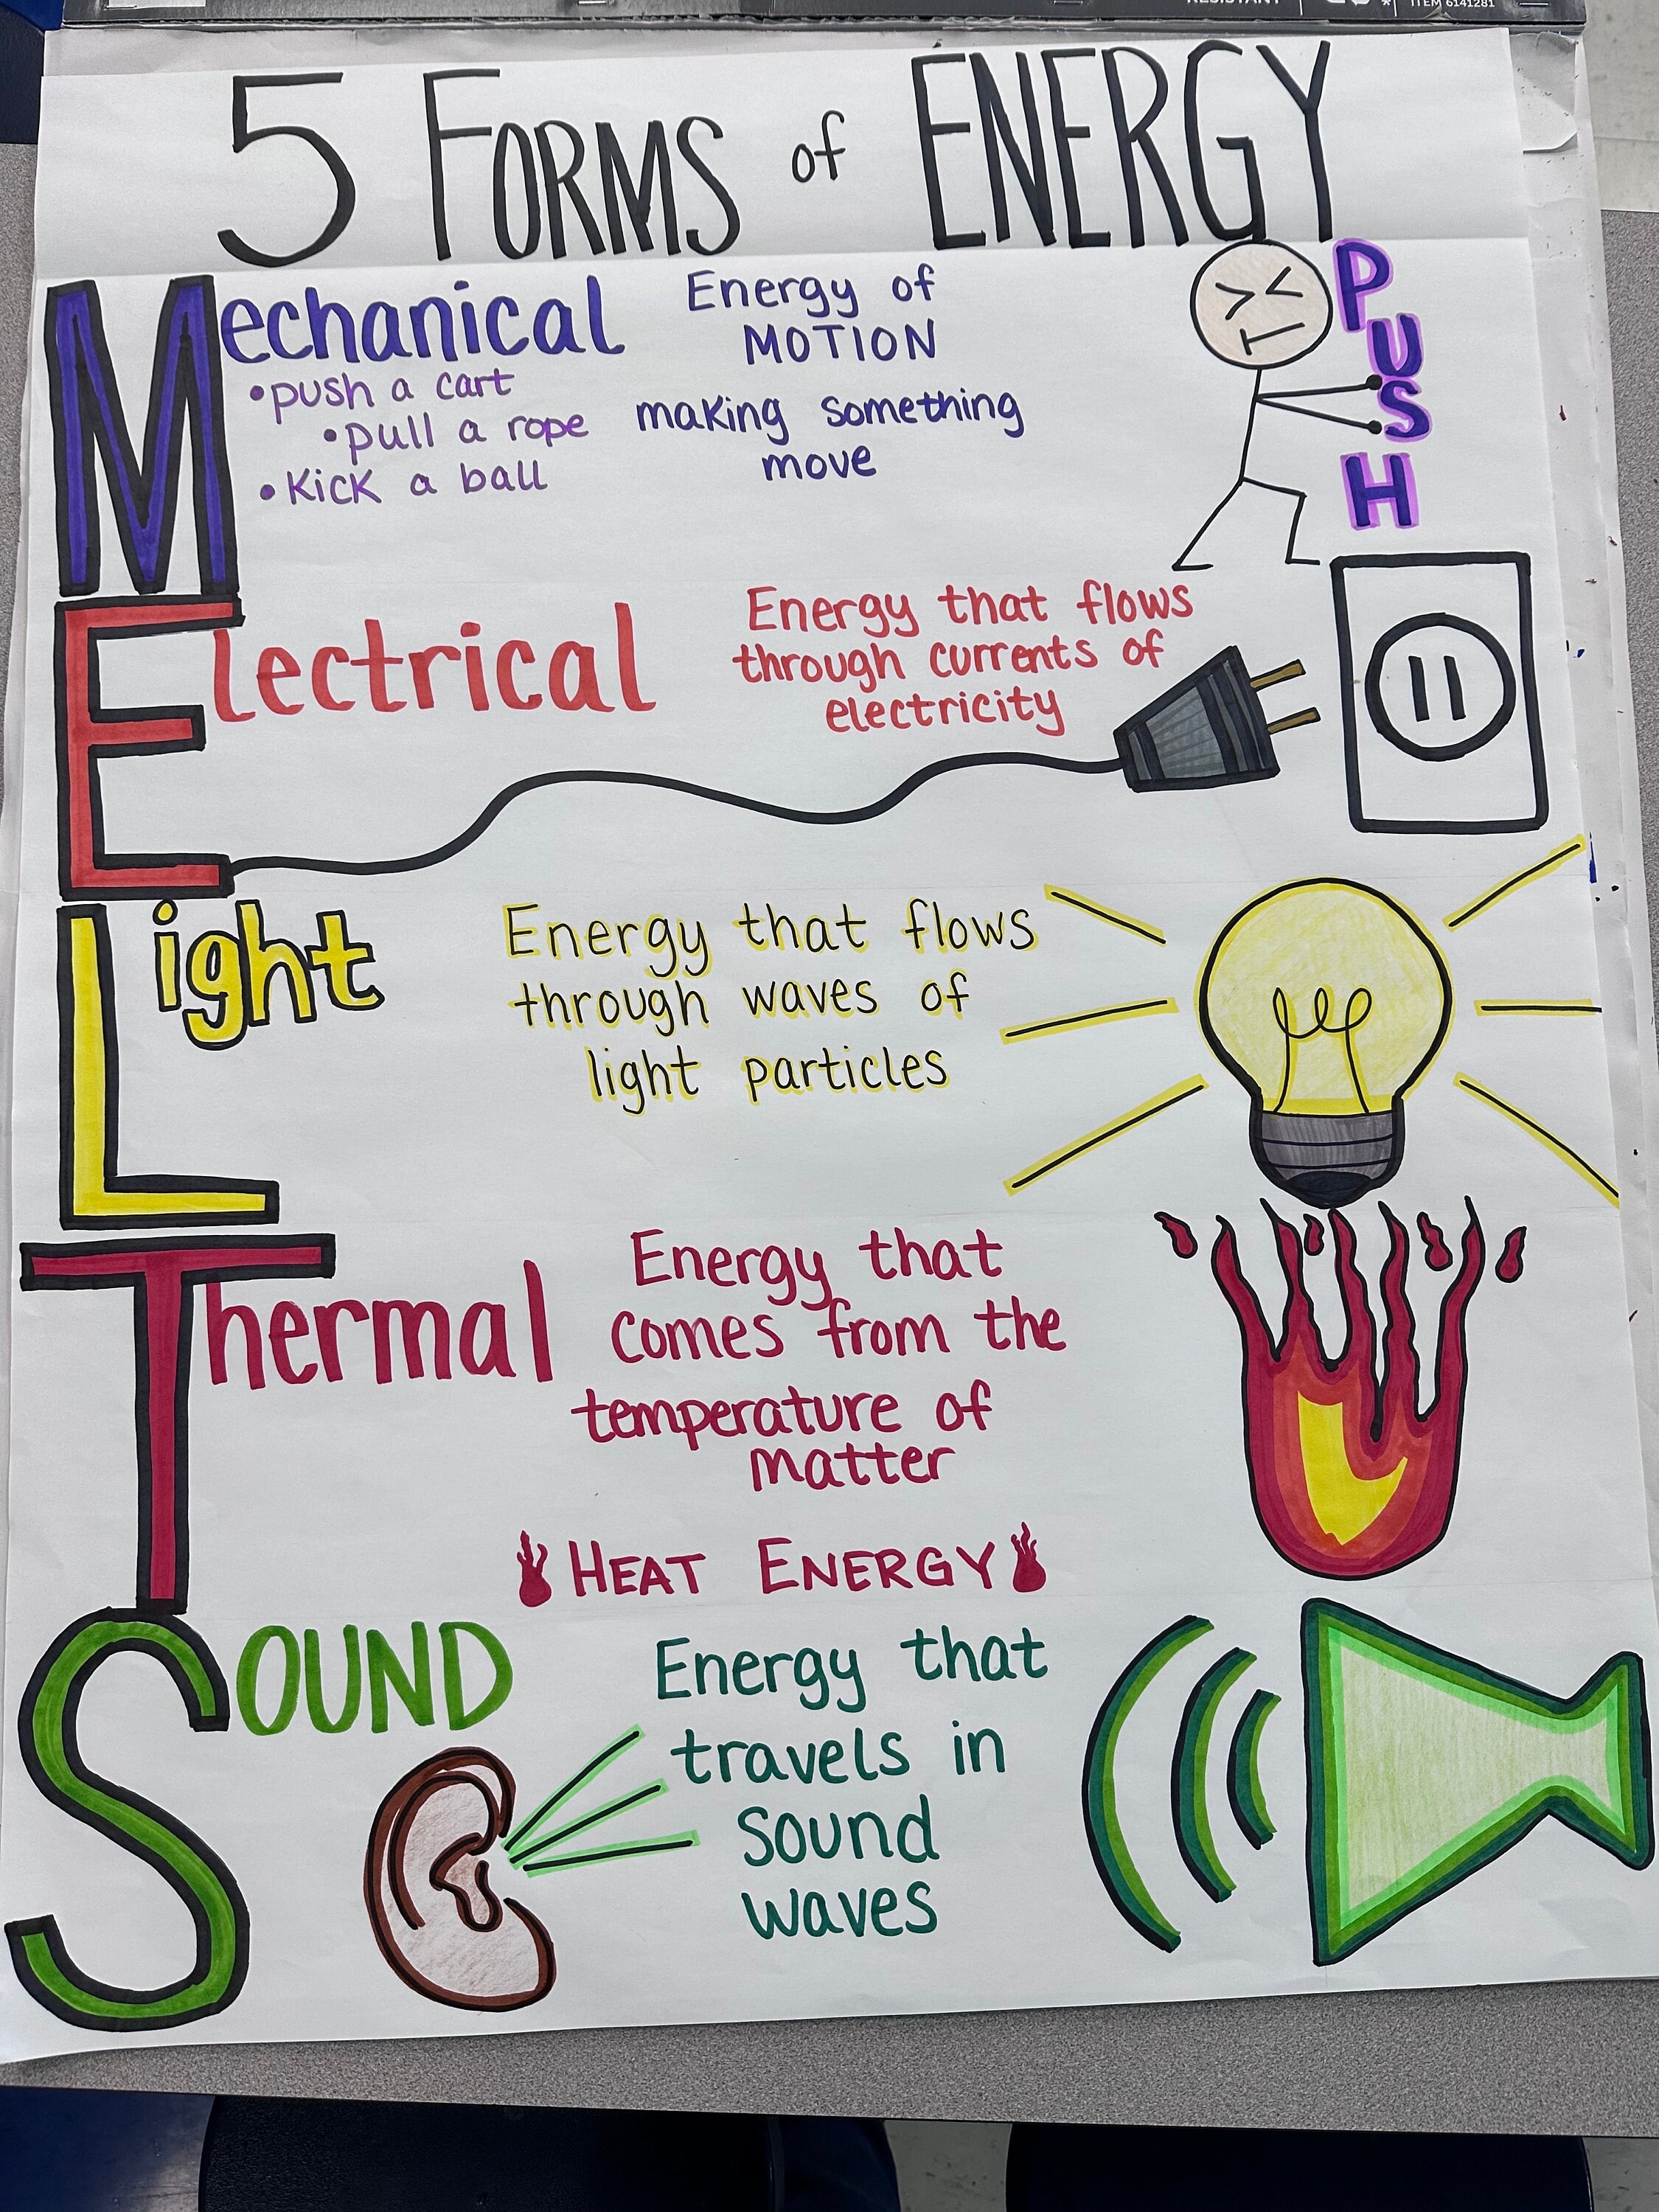 RESISTANT
ITEM 6141281
5 FORMS of ENERGY
Mechanical
Energy of
MOTION
• push a cart
• pull a rope
• Kick a ball
making something
move
PUSH
Electrical
Energy that flows
through currents of
electricity
Light
Energy that flows
through waves of
light particles
Thermal
Energy that
comes from the
temperature of
matter
HEAT ENERGY
SOUND
Energy that
travels in
sound
waves